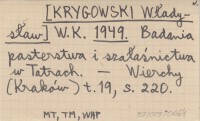 [KRYGOWSKI Włady-
sław] W.K. 1949. Badania
pasterstwa i szałaśnictwa
w Tatrach. — Wierchy
(Kraków) t. 19, s. 220.
MT, TM, WAP